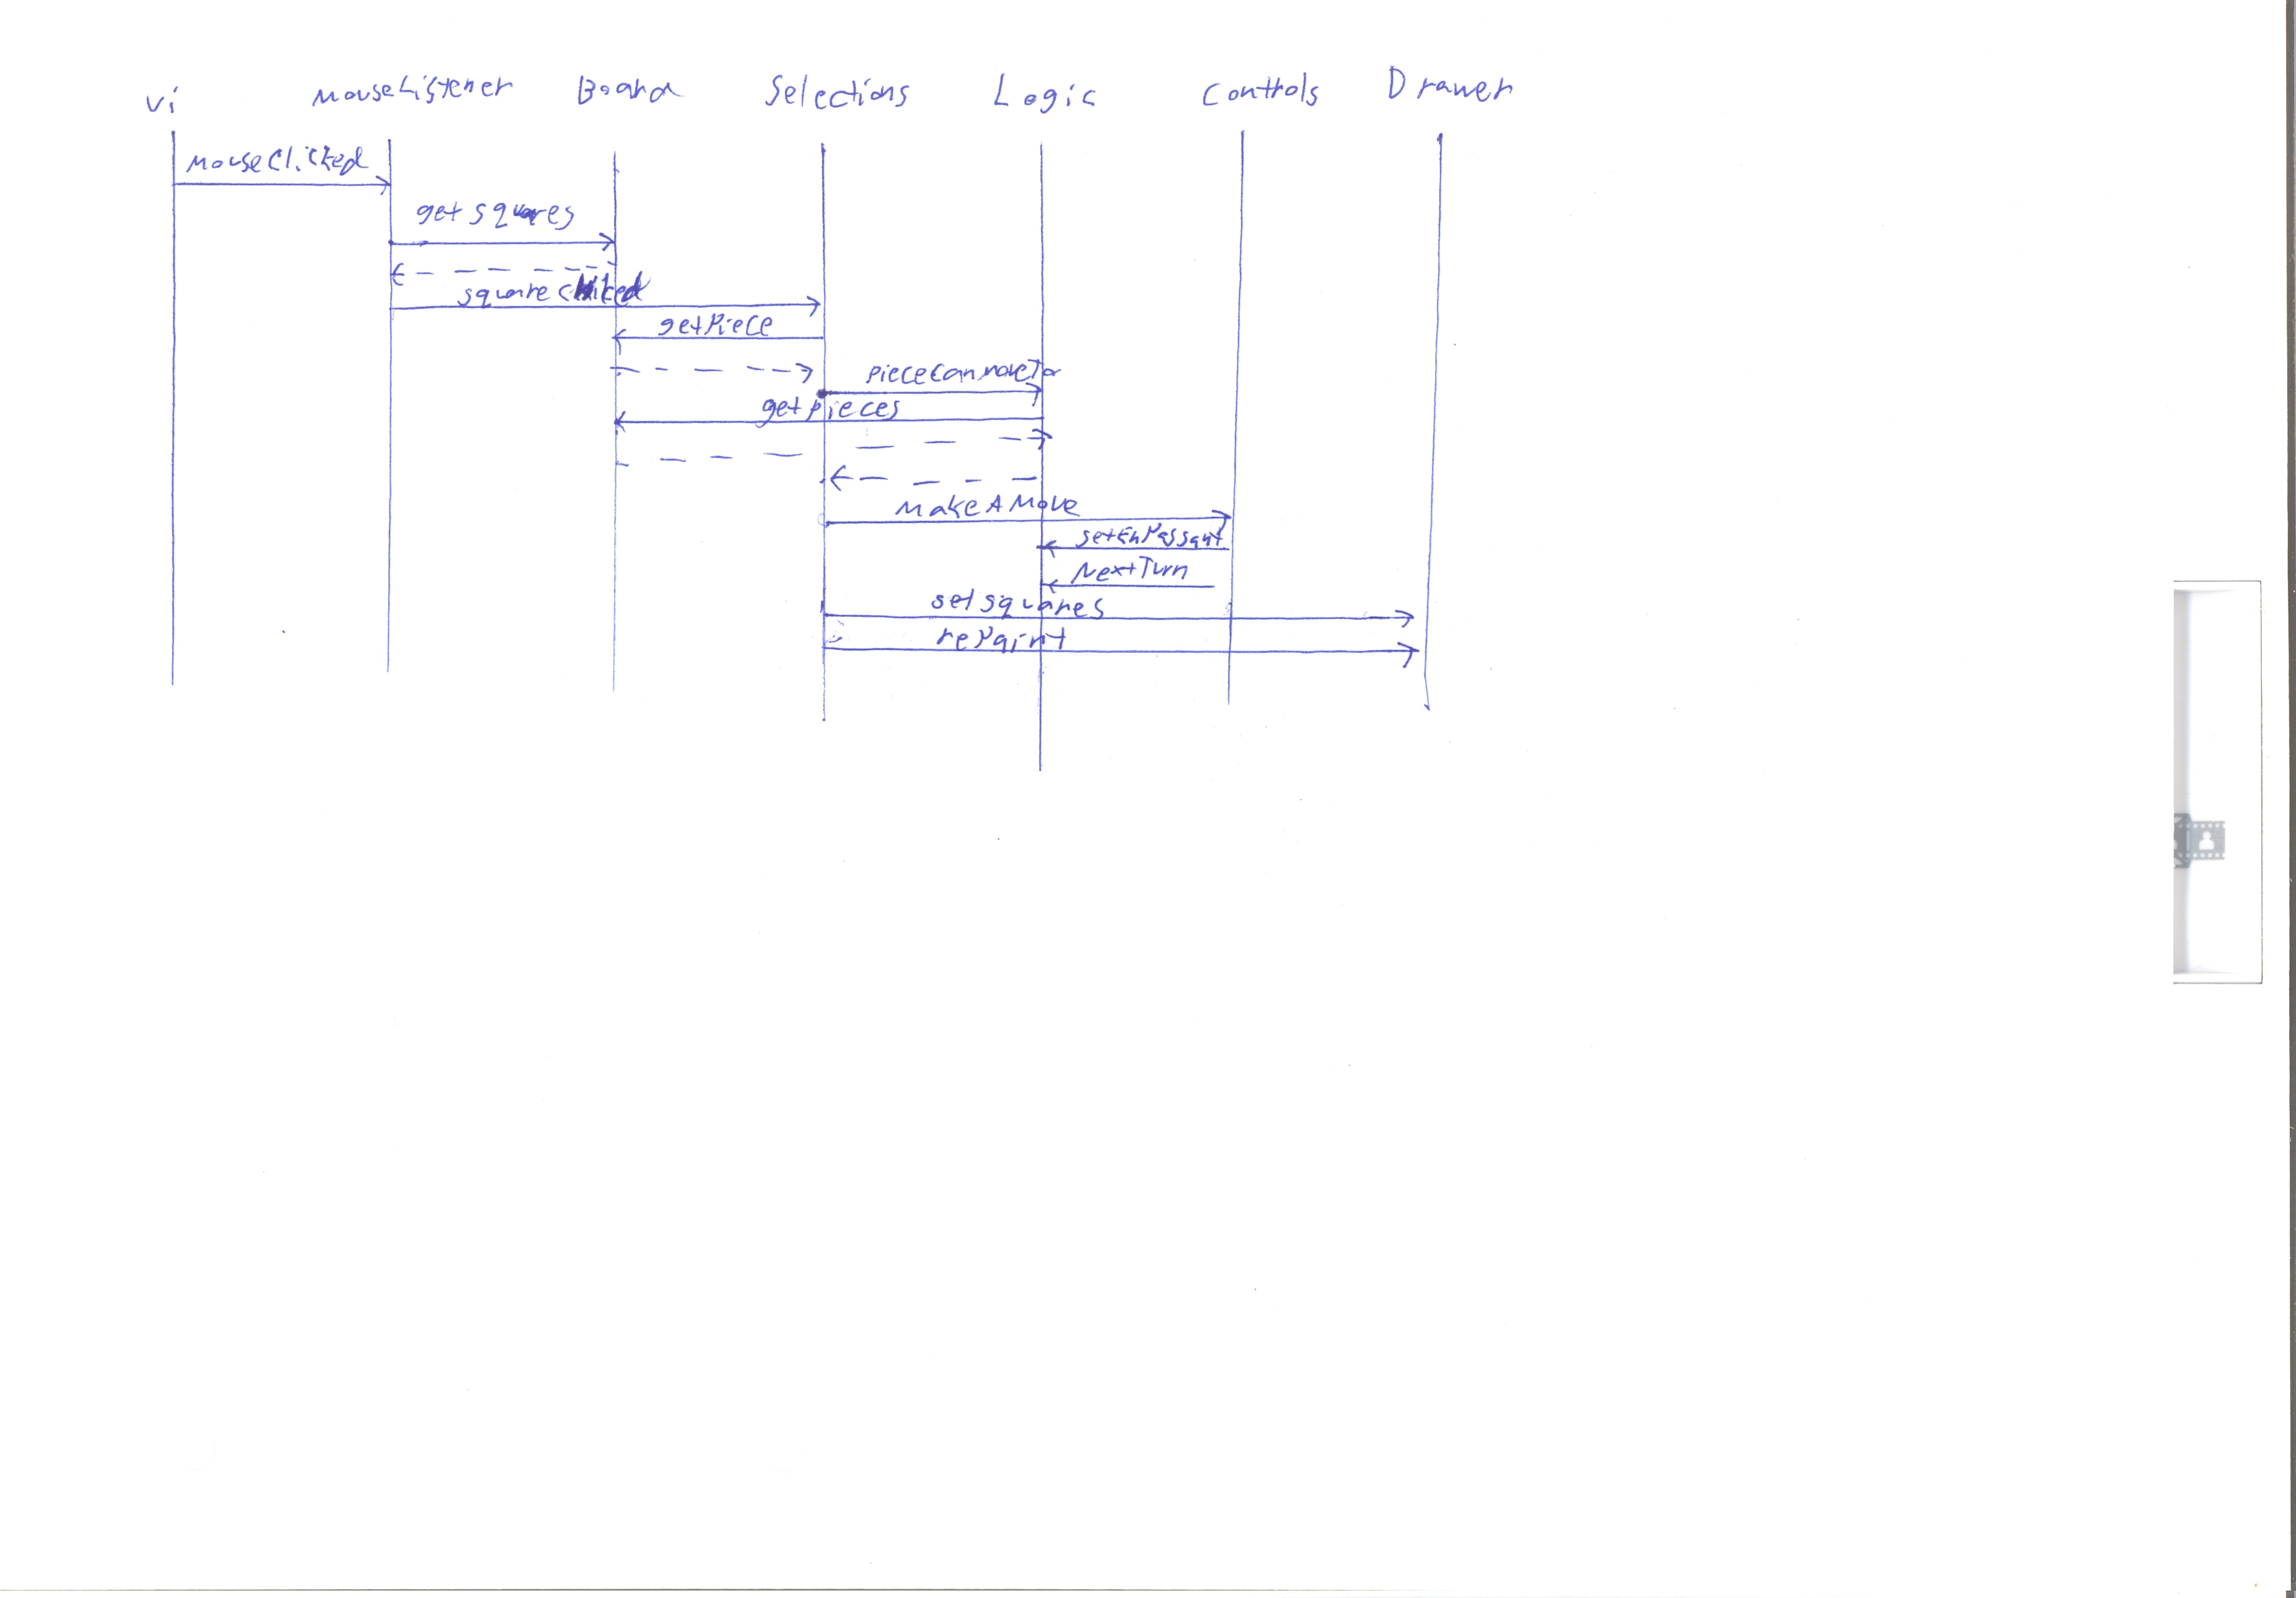 vi mouseListener Board Selections Logic Controls Drawer
mouseClicked
getsquares
squareclicked
getPiece
pieceCanmoveTo
getpieces
MakeAMove
setEnPassant
NextTurn
setsquares
rePaint